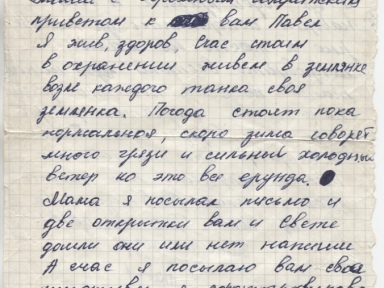 приветом к вам Павел
Я жив, здоров, Счас стоим
в охранении живем в землянке
возле каждого танка своя
землянка. Погода стоит пока
нормальная, скоро зима говорят
много грязи и сильный холодный
ветер но это все ерунда.
Мама я посылал письмо и
две открытки вам и Свете
дошли они или нет напиши
А счас я посылаю вам свои